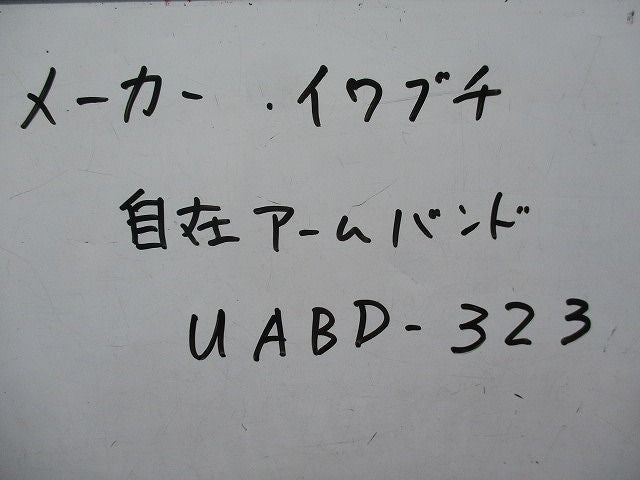 メーカー ・イワブチ
自在アームバンド
UABD-323